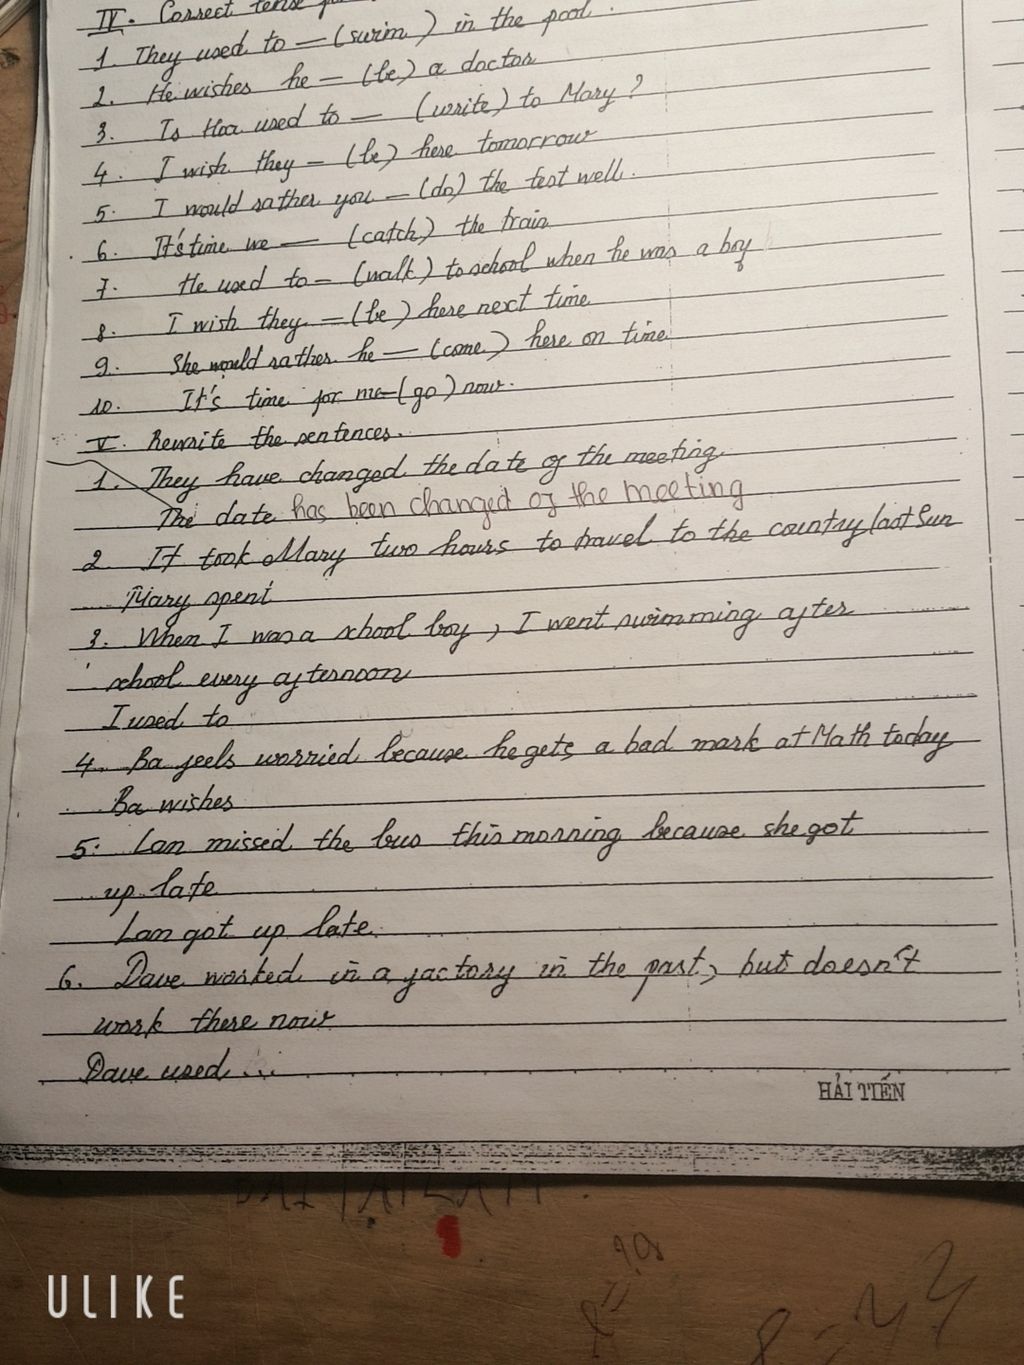 IV. Correct tense
1. They used to — (swim) in the pool.
2. He wishes he — (be) a doctor
3. Is Hoa used to — (write) to Mary?
4. I wish they — (be) here tomorrow
5. I would rather you — (do) the test well.
6. It's time we — (catch) the train
7. He used to — (walk) to school when he was a boy
8. I wish they — (be) here next time
9. She would rather he — (come) here on time
10. It's time for me — (go) now.
V. Rewrite the sentences.
1. They have changed the date of the meeting
The date has been changed of the meeting
2. It took Mary two hours to travel to the country last Sun
Mary spent
3. When I was a school boy, I went swimming after
school every afternoon
I used to
4. Ba feels worried because he gets a bad mark at Math today
Ba wishes
5. Lan missed the bus this morning because she got
up late
Lan got up late
6. Dave worked in a factory in the past, but doesn't
work there now
Dave used...
HẢI TIẾN
ULIKE